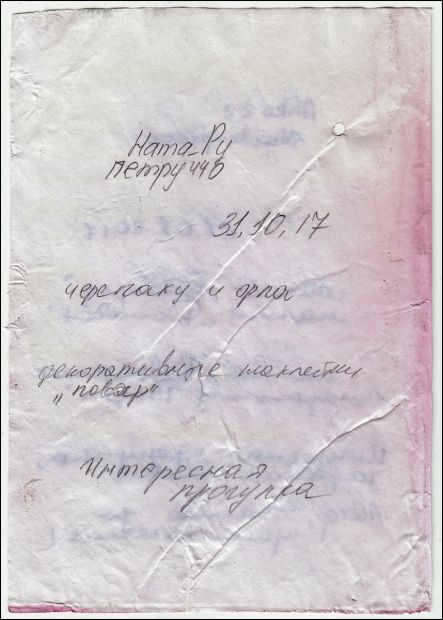 Ната_Ру
петруччо
31,10,17
черепаху и орла
декоративные наклейки
„повар"
Интересная
прогулка